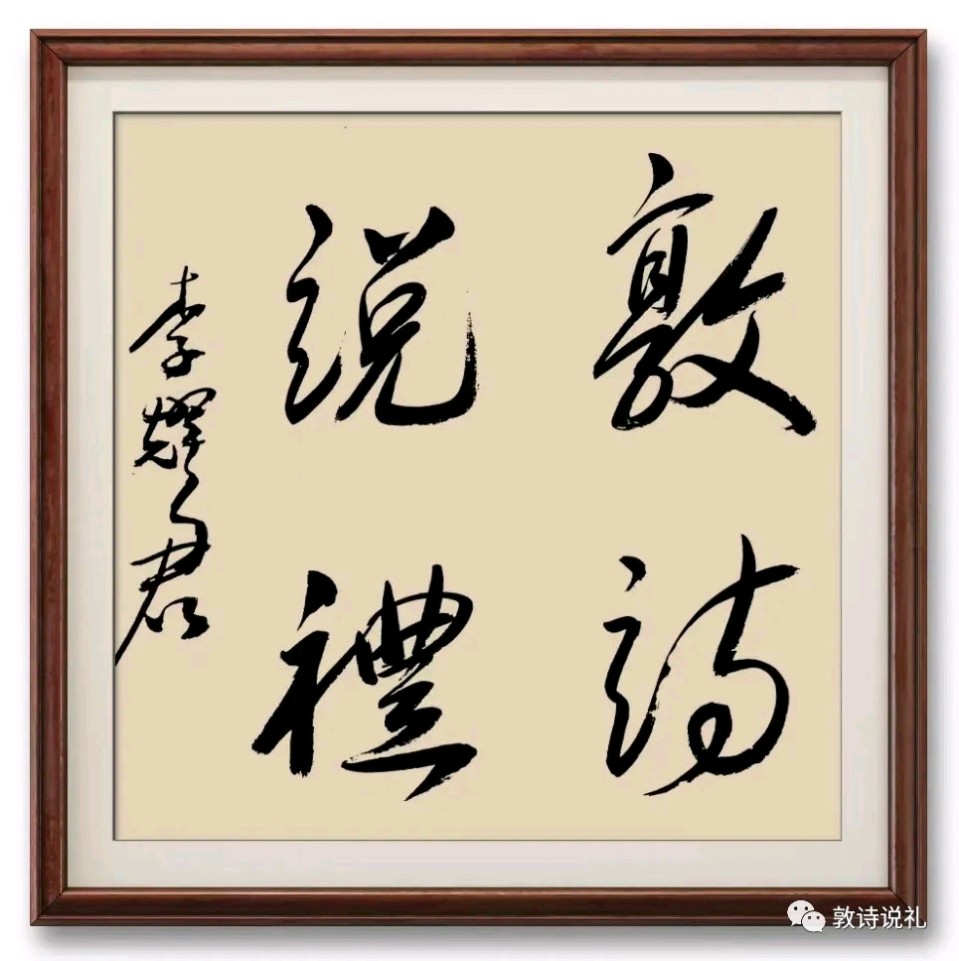 敦詩
説禮
李耀君
敦诗说礼